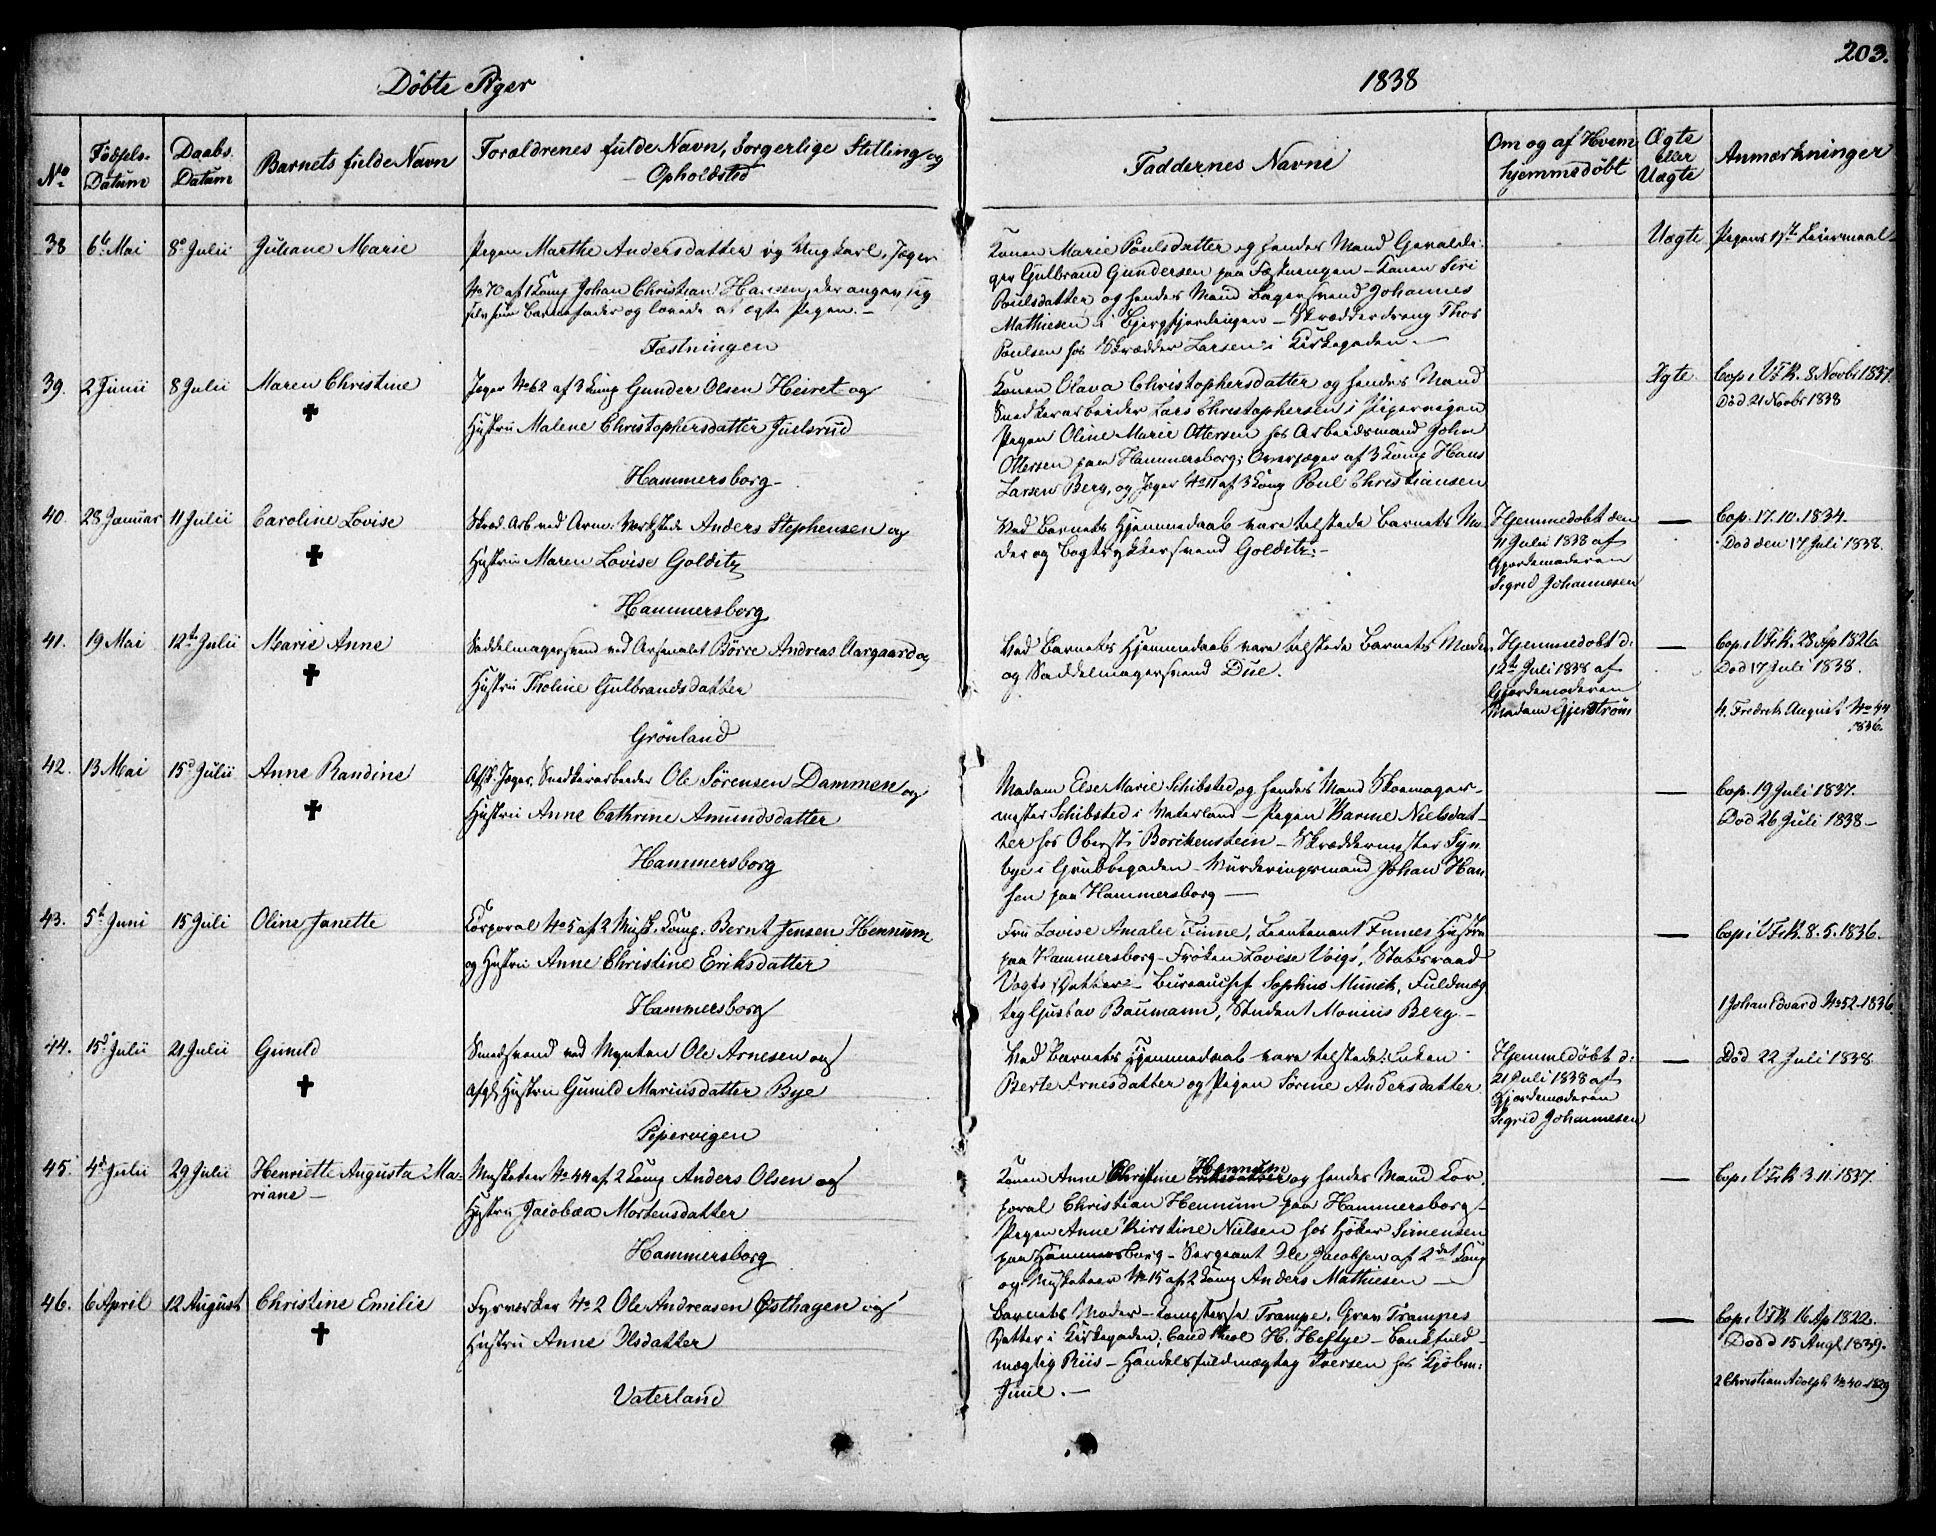 203.
Døbte Piger
1838
No
Fødsels-
Datum
Daabs
Datum
Barnets fulde Navn
Forældrenes fulde Navn, borgerlige Stilling og
Opholdsted
Faddernes Navne
Om og af Hvem
hjemmedøbt
Ægte
eller
Uægte
Anmærkninger
38 6te Mai 8de Julii Juliane Marie
Pigen Marthe Andersdatter og Ungkarl, Jæger
No 70 af 1 Komp Johan Christian Hansen, der angav sig
selv som Barnefader og lovede at egte Pigen. -
Fæstningen
Konen Marie Poulsdatter og hendes Mand Gevaldi-
ger Gulbrand Gundersen paa Fæstningen - Konen Siri
Poulsdatter og hendes Mand Bagersvend Johannes
Mathiesen i Bjergfjerdingen - Skrædderdreng Thor
Poulsen hos Skrædder Larsen i Kirkegaden. -
Uægte
Pigens 1ste Leiermaal
39. 2 Junii 8 Julii Maren Christine
Jæger No 62 af 3 Komp Gunder Olsen Heiret og
Hustru Malene Christophersdatter Juelsrud
Hammersborg
Konen Olava Christophersdatter og hendes Mand
Snedkerarbeider Lars Christophersen i Pipervigen
Pigen Oline Marie Ottersen hos Arbeidsmand John
Ottersen paa Hammersborg; Overjæger af 3 Komp Hans
Larsen Berg, og Jæger No 11 af 3 Komp Poul Christiansen
Ægte
Cop. i V.F.K. 8 Novbr 1837.
Død 21 Novbr 1838
40. 28 Januar 11 Julii Caroline Lovise
Smed. Arb ved Arm. Værkstede Anders Stephensen og
Hustru Maren Lovise Golditz
Hammersborg
Ved Barnets Hjemmedaab vare tilstede Barnets Mo-
der og Bogtrykkersvend Golditz. -
Hjemmedøbt den
11 Julii 1838 af
Gjordemoderen
Sigrid Johannesen
Cop. 17.10.1834.
Død den 17 Juli 1838.
41. 19 Mai 12te Julii Marie Anne
Saddelmagersvend ved Arsenalet Børre Andreas Aargaard og
Hustru Tholine Gulbrandsdatter
Grønland
Ved Barnets Hjemmedaab vare tilstede Barnets Moder
og Saddelmagersvend Due.
Hjemmedøbt d:
12te Juli 1838 af
Gjordemoderen
Madam Gjerstrøm
Cop. i V.F.K. 28 Ap 1826
Død 17 Juli 1838.
4. Fredrik August No 44
1836.
42. 13 Mai 15de Julii Anne Randine
Afsk. Jæger, Snedkerarbeider Ole Sørensen Dammen og
Hustru Anne Cathrine Amundsdatter
Hammersborg
Madam Else Marie Schibsted og hendes Mand Skomager-
mester Schibsted i Vaterland - Pigen Karine Nielsdat-
ter hos Oberst Borchenstein - Skræddermester Syn-
bye i Grubbegaden - Vurderingsmand Johan Han-
sen paa Hammersborg -
Cop. 19 Juli 1837.
Død 26 Juli 1838 -
43. 5te Juni 15 Juli Oline Janette
Korporal No 5 af 2 Musk. Komp. Bernt Jensen Hennum
og Hustru Anne Christine Eriksdatter
Hammersborg
Fru Lovise Amalie Finne, Lieutenant Finnes Hustru
paa Hammersborg - Frøken Lovise Voigt, Stabsraad
Vogts Datter - Bureauchef Sophus Munch, Fuldmæg
tig Gustav Baumann, Student Monius Berg. -
Cop. i V.F.K. 8.5.1836.
1 Johan Edvard No 52-1836
44. 15de Julii 21 Julii Gunild
Smedsvend ved Mynten Ole Arnesen og
afgd. Hustru Gunild Mariusdatter Bye
Pipervigen
Ved Barnets Hjemmedaab vare tilstede: Enken
Berte Arnesdatter og Pigen Sørine Andersdatter
Hjemmedøbt d:
21 Juli 1838 af
Gjordemoderen
Sigrid Johannesen
Død 22 Juli 1838
45. 4de Julii 29 Julii Henriette Augusta Ma-
riane -
Musketeer No 44 af 2 Komp Anders Olsen og
Hustru Jacobæa Mortensdatter
Hammersborg
Konen Anne Christine Hennum og hendes Mand Kor-
poral Christian Hennum paa Hammersborg -
Pigen Anne Kirstine Nielsen hos Høker Simensen
paa Hammersborg - Sergeant Ole Jacobsen af 2det Komp
og Musketeer No 15 af 2 Komp Anders Mathiesen -
Cop. i V.F.K 3.11.1837.
46. 6 April 12 August Christine Emilie
Fyrverker No 2 Ole Andreasen Østhagen og
Hustru Anne Olsdatter
Vaterland
Barnets Moder - Komtesse Trampe, Grev Trampes
Datter i Kirkegaden, Cand theol H. Heftye - Bankfuld-
mægtig Riis - Handelsfuldmægtig Iversen hos Kjøbm:
Juul. -
Cop. i V.F.K 16 Ap 1822.
Død d 15 Augt 1839.
2 Christian Adolph No 40-1829